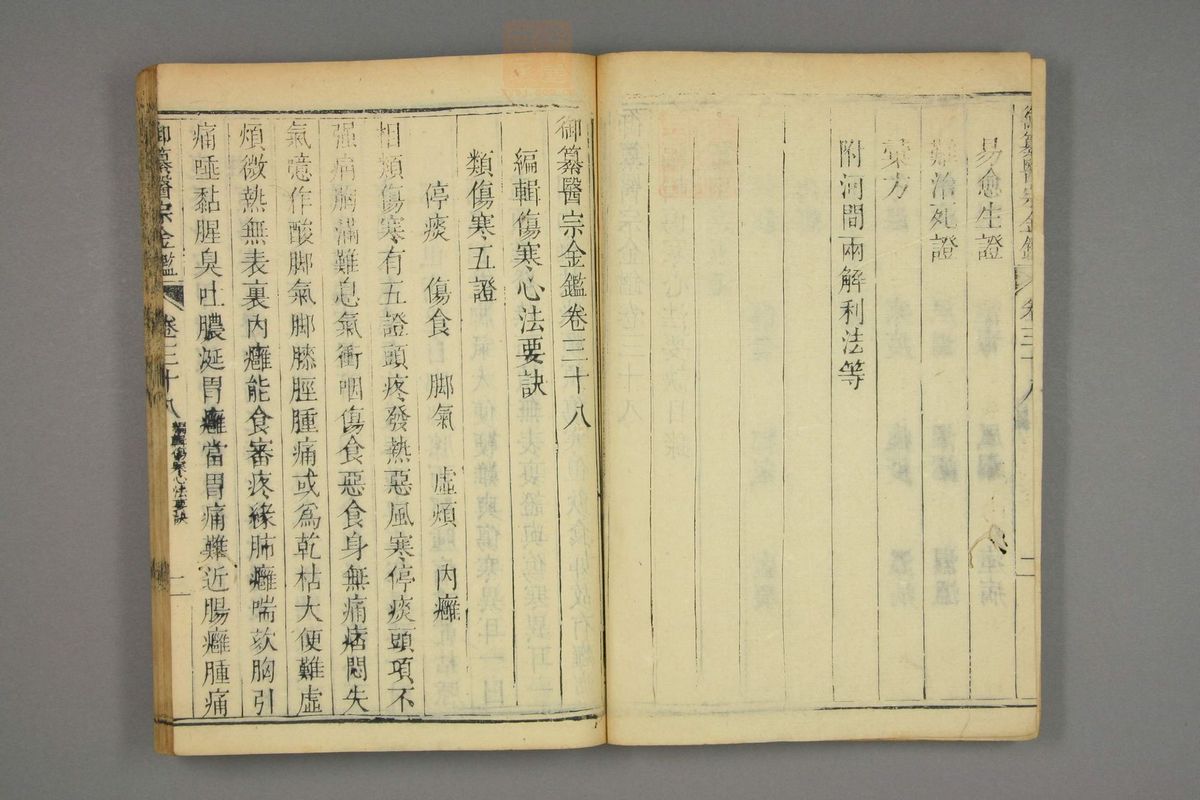 御纂醫宗金鑑 卷三十八 二
易愈生證
難治死證
彙方
附河間兩解利法等
御纂醫宗金鑑卷三十八
編輯傷寒心法要訣
類傷寒五證
停痰 傷食 脚氣 虛煩 內癰
相類傷寒有五證頭疼發熱惡風寒停痰頭項不
强痛胸滿難息氣衝咽傷食惡食身無痛痞悶失
氣噫作酸脚氣脚膝脛腫痛或爲乾枯大便難虛
煩微熱無表裏內癰能食審疼緣肺癰喘欬胸引
痛唾黏腥臭吐膿涎胃癰當胃痛難近腸癰腫痛
御纂醫宗金鑑 卷三十八 編輯傷寒心法要訣 一